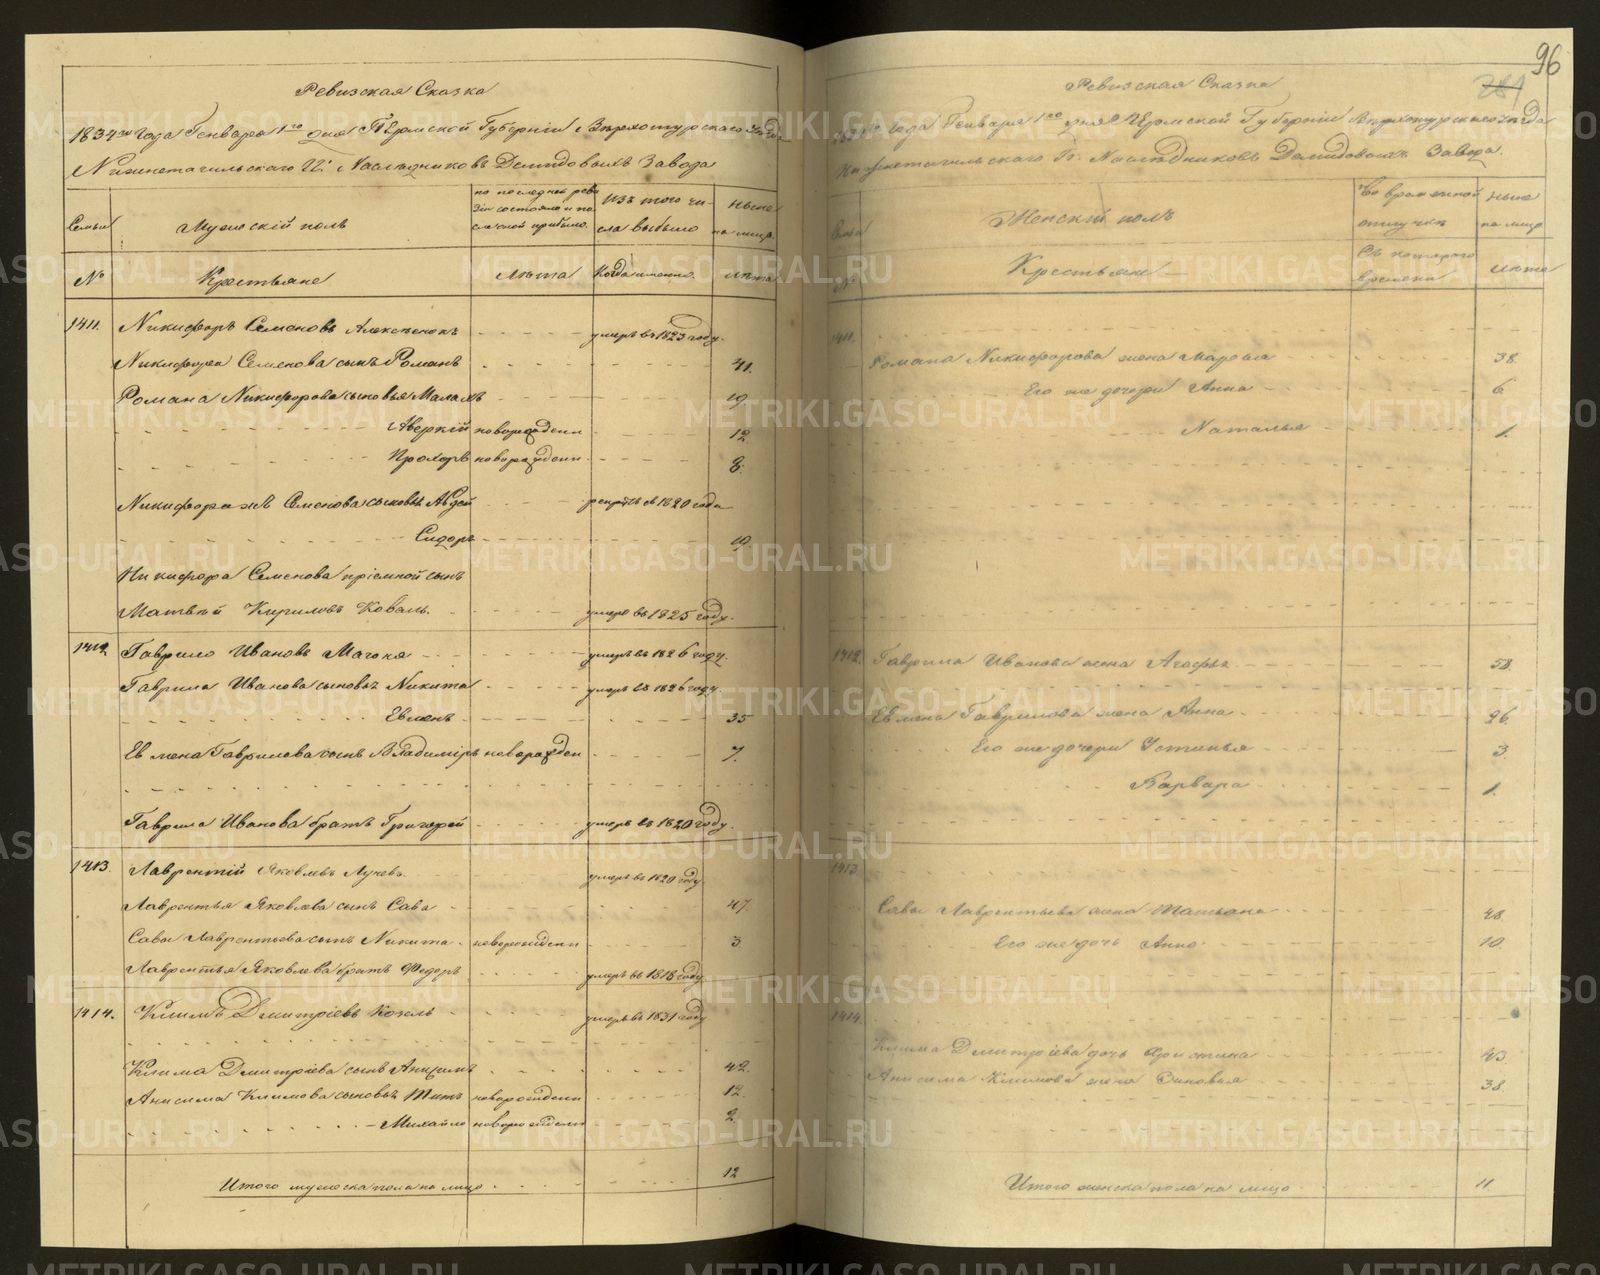 96
Ревизская Сказка
1834го года Генваря 1го дня Пермской Губерніи Верхотурскаго уѣзда
Нижнетагильскаго Гг. Наслѣдниковъ Демидовыхъ Завода
Семьи
Мужескій полъ
по послѣдней реви
зіи состояло и по
слѣ оной прибыло.
Изъ того чи-
сла выбыло
Ныне
на лицо.
№
Крестьяне
Лѣта
Когда именно.
лѣта
1411. Никифоръ Семеновъ умеръ въ 1823 году.
Никифора Семенова сынъ Романъ 41.
Романа Никифорова сыновья 19
Аверкій новорожденн 12
Прохоръ новорожденн 8.
Никифора жъ Семенова сыновья Авдей рекрутъ въ 1820 года
Сидоръ 19
Никифора Семенова пріемной сынъ
Матвѣй Кириловъ Коваль. умеръ въ 1825 году.
1412. Гаврило Ивановъ умеръ въ 1826 году.
Гаврила Иванова сыновья Никита умеръ въ 1826 году.
Евменъ 35
Евмена Гаврилова сынъ Владимиръ новорожден 7.
Гаврила Иванова братъ Григорей умеръ въ 1820 году.
1413. Лаврентій Яковлевъ умеръ въ 1820 году
Лаврентья Яковлева сынъ Сава 47.
Савы Лаврентьева сынъ Никита новорожденн 3
Лаврентья Яковлева братъ Федоръ умеръ въ 1818 году
1414. Климъ Дмитріевъ Коваль умеръ въ 1831 году
Клима Дмитріева сынъ Анисимъ 42.
Анисима Климова сыновья Титъ новорожденн 12.
Михайло новорожденн 2.
Итого мужеска пола на лицо 12
Ревизская Сказка
1834го года Генваря 1го дня Пермской Губерніи Верхотурскаго уѣзда
Нижнетагильскаго Гг. Наслѣдниковъ Демидовыхъ Завода.
Семьи
Женскій полъ
Во временной
отлучкѣ
Ныне
на лицо
№
Крестьян
Съ котораго
времени
лѣта
1411.
Романа Никифорова жена Марѳа 38.
Его же дочери Анна 6
Наталья 1.
1412. Гаврила Иванова жена Агафья 58.
Евмена Гаврилова жена Анна 26.
Его же дочери Устинья 3.
Варвара 1.
1413.
Савы Лаврентьева жена Татьяна 48.
Его же дочь Анна 10.
1414.
Клима Дмитріева дочь 43
Анисима Климова жена Зиновья 38.
Итого женска пола на лицо 11
METRIKI.GASO-URAL.RU